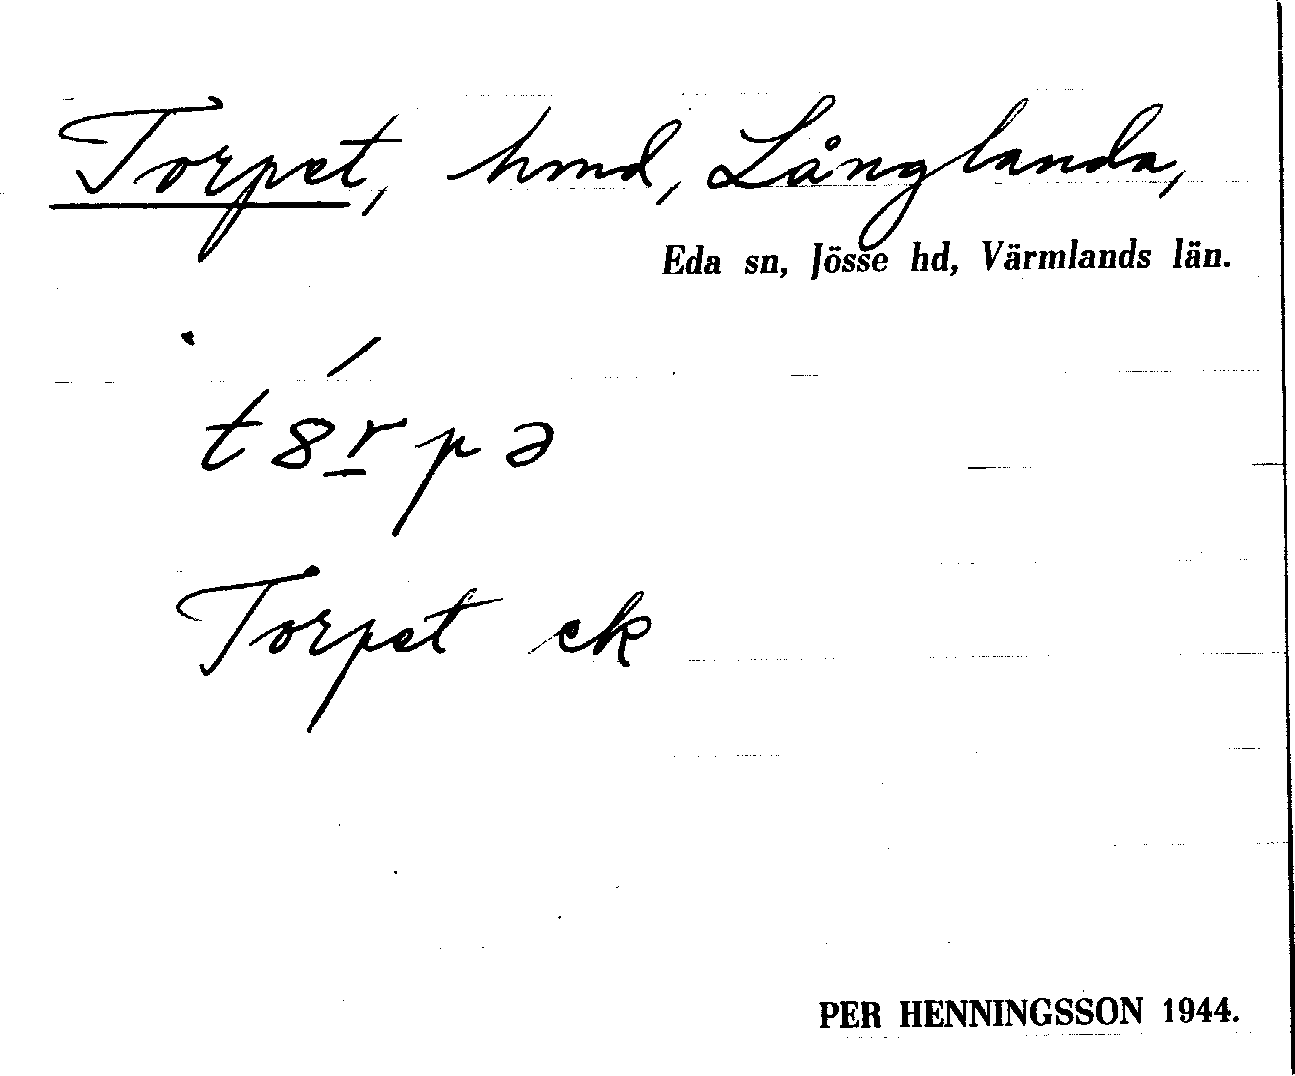 Torpet, hmd, Långlanda,
Eda sn, Jösse hd, Värmlands län.
t8rpə
Torpet ek
PER HENNINGSSON 1944.